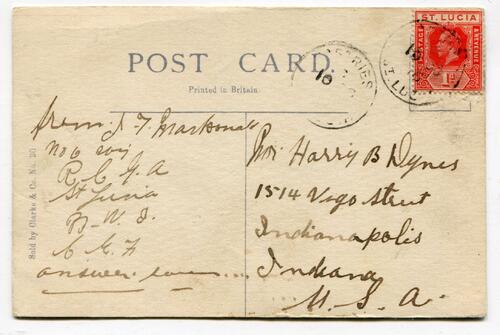 POST CARD
Printed in Britain
ST. LUCIA
POSTAGE
& REVENUE
1d
CASTRIES
16
ST. LUC
Sold by Clarke & Co. No. 30
from J. F.
no 6
R C G A
St Lucia
B. W. I.
answer soon
Mr Harry B Dynes
1514 Vigo Street
Indianapolis
Indiana
U. S. A.